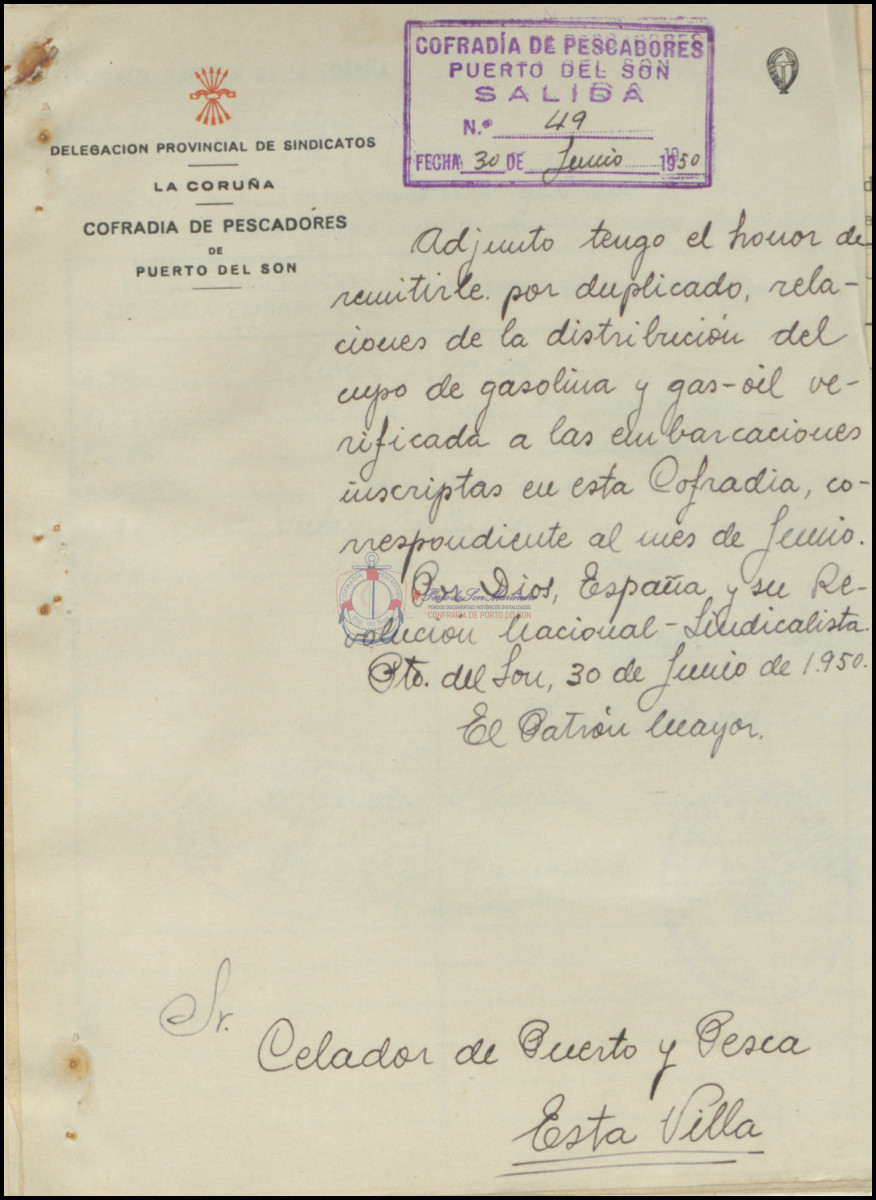 DELEGACION PROVINCIAL DE SINDICATOS
LA CORUÑA
COFRADIA DE PESCADORES
DE
PUERTO DEL SON
COFRADÍA DE PESCADORES
PUERTO DEL SON
SALIDA
N.º 49
FECHA 30 DE Junio 1950
Adjunto tengo el honor de
remitirle por duplicado, rela-
ciones de la distribución del
cupo de gasolina y gas-oil ve-
rificada a las embarcaciones
inscriptas en esta Cofradia, co-
rrespondiente al mes de Junio.
Por Dios, España y su Re-
volución Nacional-Sindicalista.
Pto. del Son, 30 de Junio de 1.950.
El Patrón Mayor.
FONDOS DOCUMENTAIS HISTÓRICOS DIXITALIZADOS
CONFRARÍA DE PORTO DO SON
Sr.
Celador de Puerto y Pesca
Esta Villa